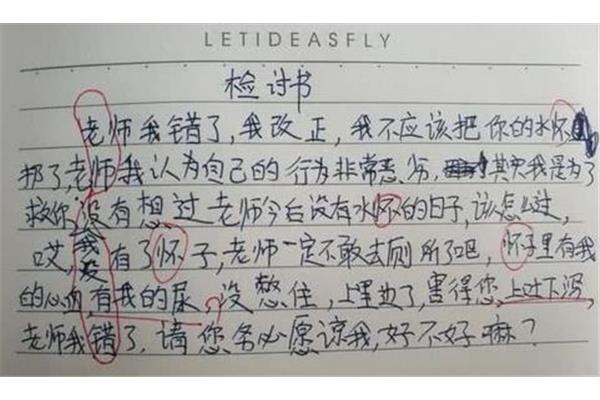 LETIDEASFLY
检讨书
老师我错了,我改正,我不应该把你的水怀
扔了,老师我认为自己的行为非常恶劣,其实我是为了
救你,没有想过老师今后没有水怀的日子,该怎么过,
哎,我没有了怀子,老师一定不敢去厕所了吧,怀子里有我
的心血,有我的尿,没憋住,上里边了,害得您,上过下泻,
老师我错了,请您务必愿谅我,好不好嘛?